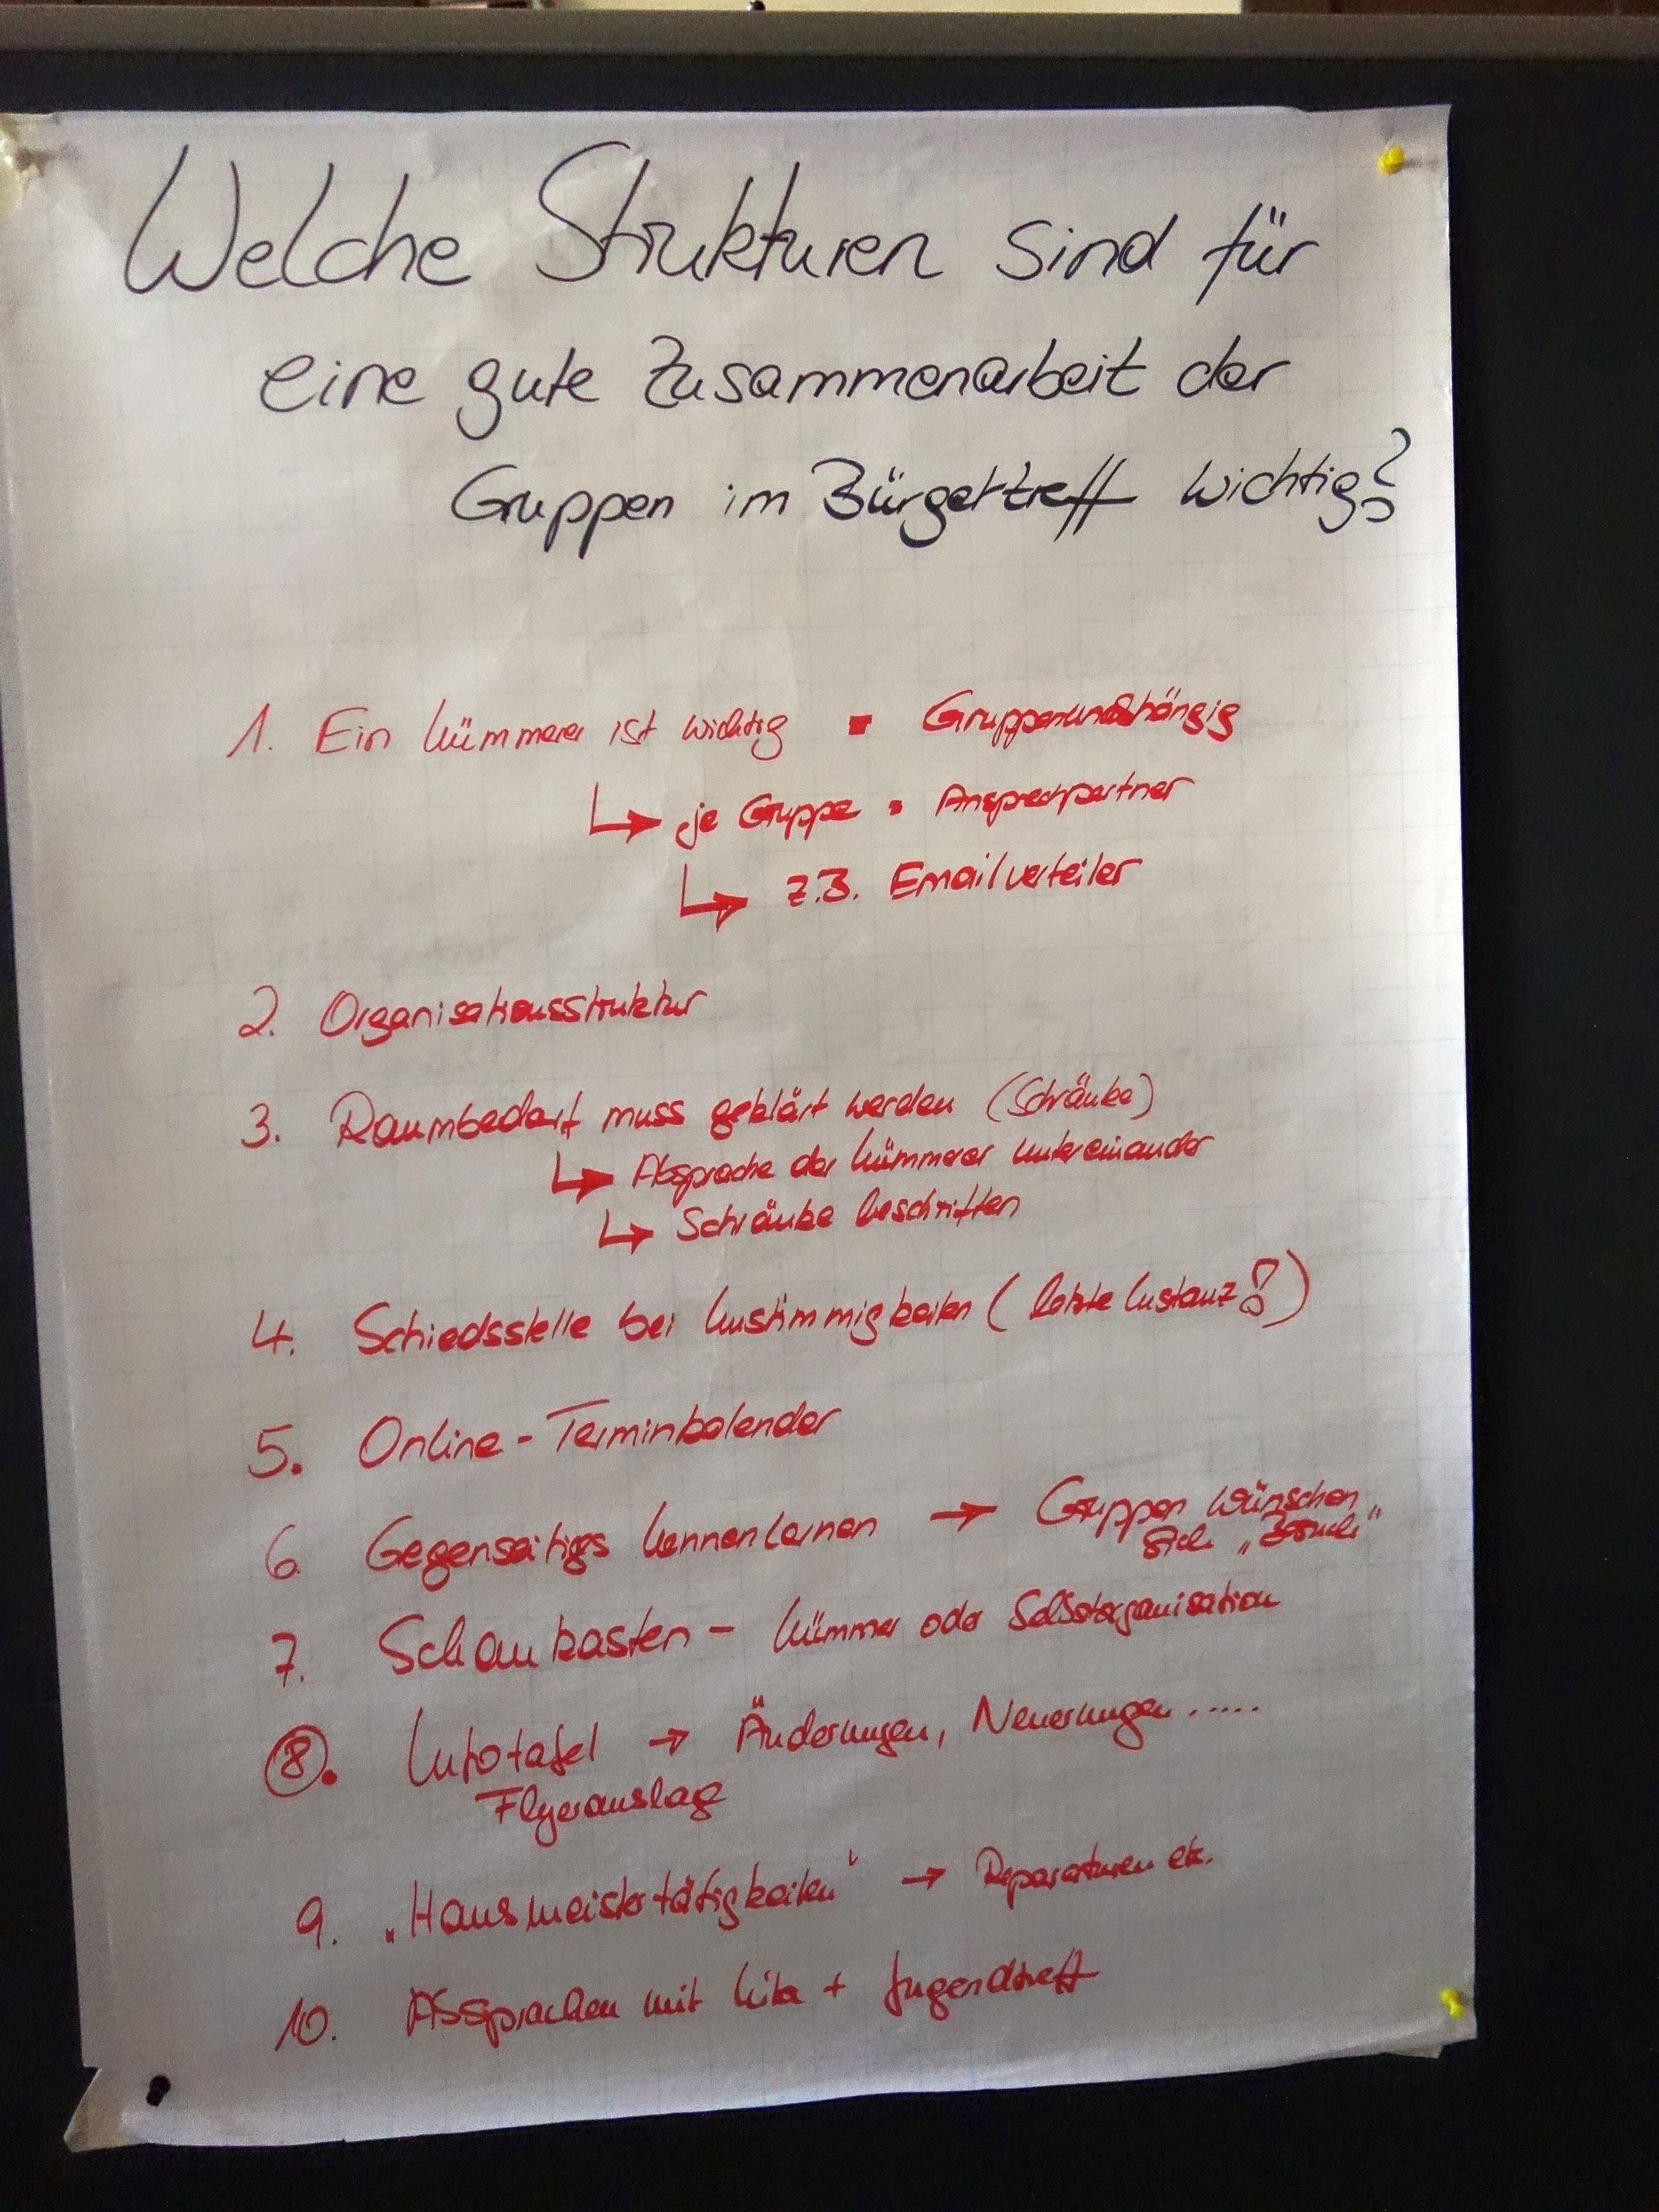 Welche Strukturen sind für
eine gute Zusammenarbeit der
Gruppen im Bürgertreff wichtig?
1. Ein Kümmerer ist wichtig = Gruppenunabhängig
↳ je Gruppe = Ansprechpartner
↳ z.B. Emailverteiler
2. Organisationsstruktur
3. Raumbedarf muss geklärt werden (Schränke)
↳ Absprache der Kümmerer untereinander
↳ Schränke beschriften
4. Schiedsstelle bei Unstimmigkeiten (letzte Instanz?)
5. Online-Terminkalender
6. Gegenseitiges Kennenlernen → Gruppen wünschen
sich „Besuch"
7. Schaukasten - Kümmerer oder Selbstorganisation
8. Infotafel → Änderungen, Neuerungen.....
Flyerauslage
9. „Hausmeistertätigkeiten" → Reparaturen etc.
10. Absprachen mit Kita + Jugendtreff